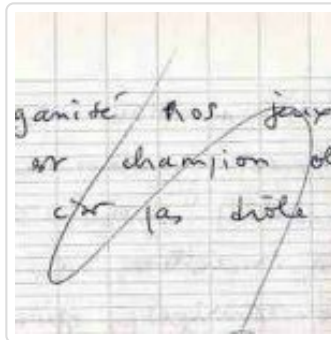 ganisé nos jeux
est champion ol
c'est pas drôle